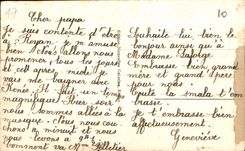 10
Cher papa
Je suis contente d'être
à Royan, je m'amuse
bien. Nous allons nous
promener, tous les jours
cet après-midi. Je
vais me baigner avec
Renée. Il fait un temps
magnifique. Hier soir
nous sommes allées à la
musique. Nous nous cou-
chons à minuit et nous
nous levons à 9h
Comment va Mme Pelletier
Souhaite lui bien le
bonjour ainsi qu'à
Madame
Embrasse bien grand
mère et grand père
pour nous.
toute la smala t'em
brasse.
Je t'embrasse bien
affectueusement.
Geneviève